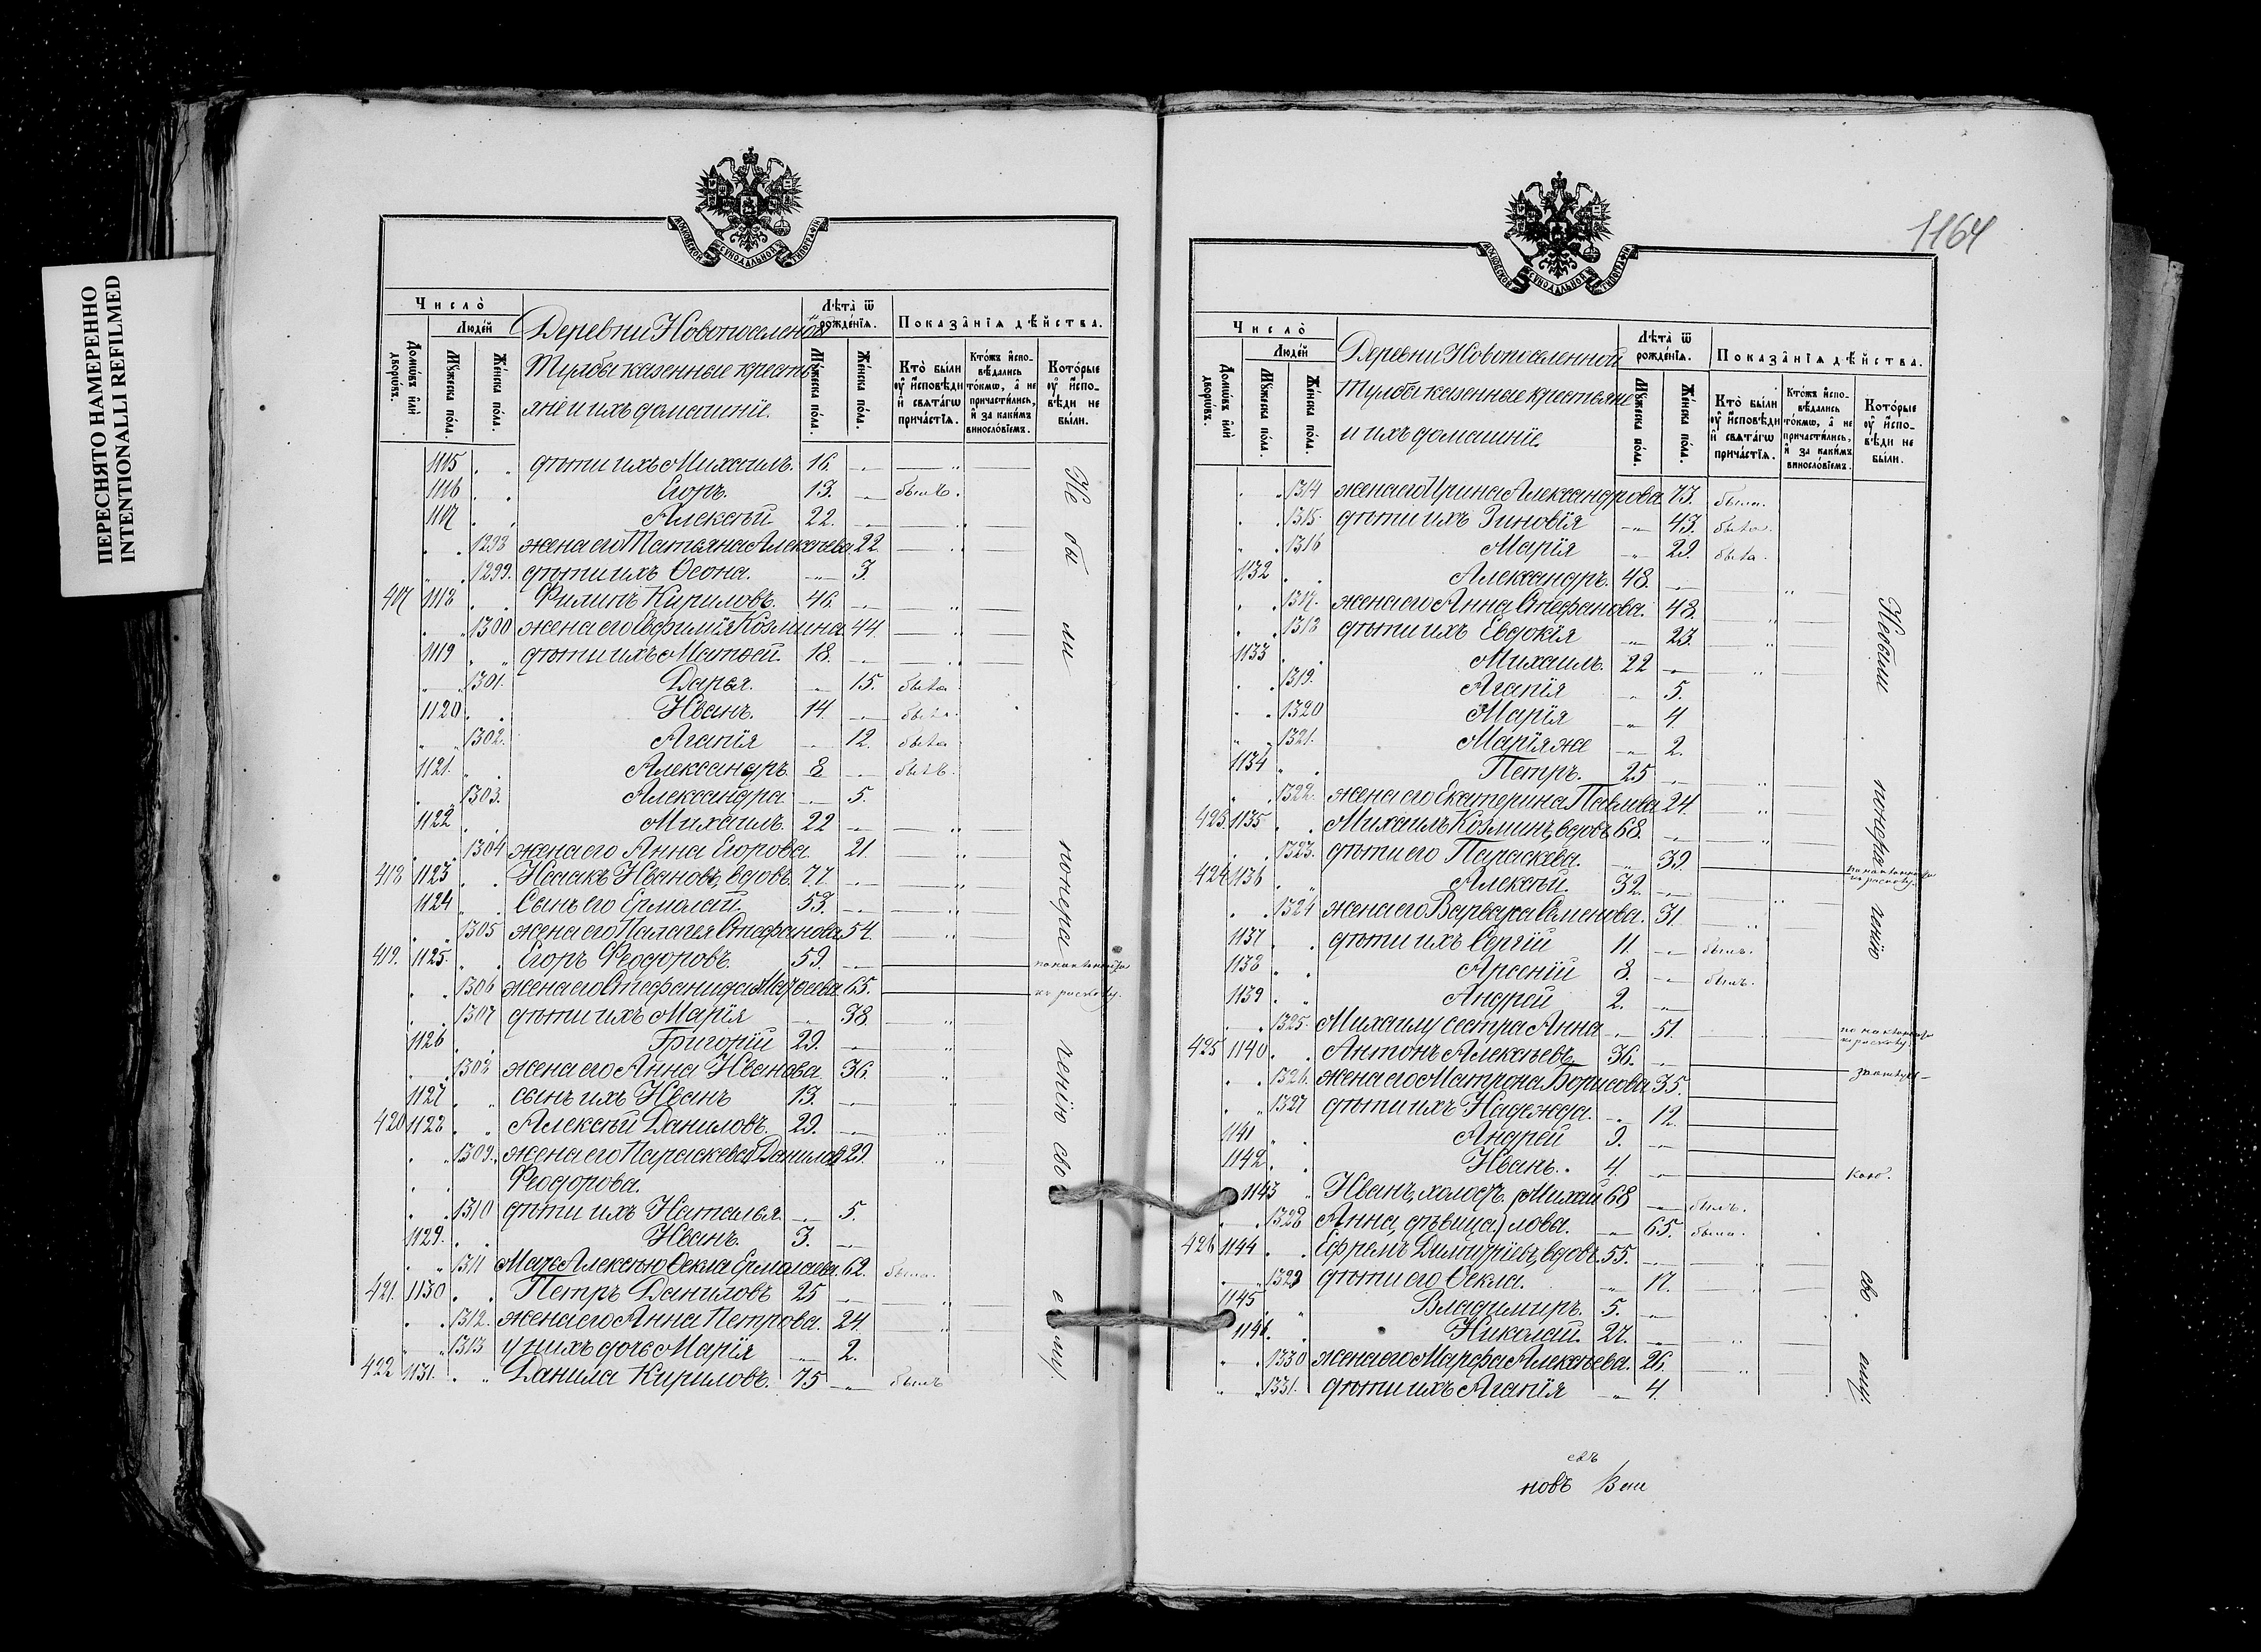 ПЕРЕСНЯТО НАМЕРЕННО
INTENTIONALLI REFILMED
МОСКОВСКОЙ СѴНОДАЛЬНОЙ ТИПОГРАФІИ
Число̀
Людей
Домѡвъ и҆лѝ дворѡвъ.
Мꙋжеска по́ла.
Же́нска по́ла.
Деревни Новопоселеной
Тумбы казенные крестья
яне и ихъ домашніе
Лѣта̀ ѿ рожде́нїѧ.
Мꙋжеска по́ла.
Же́нска по́ла.
Показа̑нїѧ дѣ́йства.
Кто̀ бы́ли ᲂу҆ и҆сповѣди и҆ свѧта́гѡ прича́стїѧ.
Кто́жъ и҆спо-вѣдались то́кмѡ, а҆ не причасти́лись, и҆ за каки́мъ винословїемъ.
Кото́рые ᲂу҆ и҆спо-вѣди не бы́ли.
1115 дѣти ихъ Михаилъ. 16.
1116 Егоръ. 13. былъ.
1117 Алексѣй 22.
1298 жена его Татьяна Алексѣева 22.
1299. дѣти ихъ Ѳеона. 3.
417 1118 Филипъ Кириловъ. 46.
1300 жена его Евфимія Козмина 44.
1119 дѣти ихъ Матѳей. 18.
1301. Дарья. 15. была
1120 Иванъ. 14.
1302. Агапія 12. была
1121. Александръ 8 былъ.
1303. Александра 5.
1122 Михаилъ. 22
1304 жена его Анна Егорова. 21.
418 1123 Исаакъ Ивановъ, вдовъ. 77.
1124 Сынъ его Ермолай. 53.
1305 жена его Палагея Стефанова 54.
419. 1125. Егоръ Ѳеодоровъ. 59.
1306 жена его Стефанида 65.
1307 дѣти ихъ Марія 38.
1126 Григорій 29.
1308 жена его Анна Иванова 36.
1127 сынъ ихъ Иванъ 13
420 1128 Алексѣй Даниловъ. 29.
1309. жена его Параскева Данилова 29.
Ѳеодорова.
1310 дѣти ихъ Наталья 5.
1129. Иванъ. 3.
1311 Мать Алексѣю Ѳекла Ермолаева. 62. была.
421. 1130 Петръ Даниловъ 25
1312. жена его Анна Петрова. 24.
1313 у нихъ дочь Марія 2.
422 1131. Данила Кириловъ. 75 былъ
Не бы ли
по наклонности
къ расколу.
1164
МОСКОВСКОЙ СѴНОДАЛЬНОЙ ТИПОГРАФІИ
Число̀
Людей
Домѡвъ и҆лѝ дворѡвъ.
Мꙋжеска по́ла.
Же́нска по́ла.
Деревни Новопоселенной
Тумбы казенные крестьяне
и ихъ домашніе
Лѣта̀ ѿ рожде́нїѧ.
Мꙋжеска по́ла.
Же́нска по́ла.
Показа̑нїѧ дѣ́йства.
Кто̀ бы́ли ᲂу҆ и҆сповѣди и҆ свѧта́гѡ прича́стїѧ.
Кто́жъ и҆спо-вѣдались то́кмѡ, а҆ не причасти́лись, и҆ за каки́мъ винословїемъ.
Кото́рые ᲂу҆ и҆спо-вѣди не бы́ли.
1314 жена его Ирина Александрова. 73. была.
1315. дѣти ихъ Зиновія 43. была.
1316 Марія 29. была.
1132 Александръ. 48.
1317. жена его Анна Стефанова. 48.
1318 дѣти ихъ Евдокія 23.
1133 Михаилъ. 22
1319. Агапія 5.
1320 Марія 4
1321. Марія же 2.
1134 Петръ. 25
1322. жена его Екатерина Павлова 24.
423. 1135 Михаилъ Козминъ, вдовъ 68.
1323. дѣти его Параскева. 39.
424 1136 Алексѣй. 32.
1324 жена его Варвара Семенова. 31.
1137 дѣти ихъ Сергій 11 былъ.
1138 Арсеній 8. былъ.
1139 Андрей 2.
1325. Михаилу сестра Анна 51.
425 1140 Антонъ Алексѣевъ 36.
1326. жена его Матрона Борисова 35.
1327 дѣти ихъ Надежда. 12.
1141 Андрей 9.
1142 Иванъ. 4.
1143 Иванъ, холостъ. Михай 68 былъ.
1328 Анна, дѣвица. лова. 65. была.
426 1144 Ефремъ Димитріевъ, вдовъ. 55.
1329 дѣти его Ѳекла. 17.
1145 Владимиръ. 5.
1146. Николай. 27.
1330 жена его Марѳа Алексѣева. 26.
1331. дѣти ихъ Агапія 4.
Небыли понера чению сво ему.
новъ